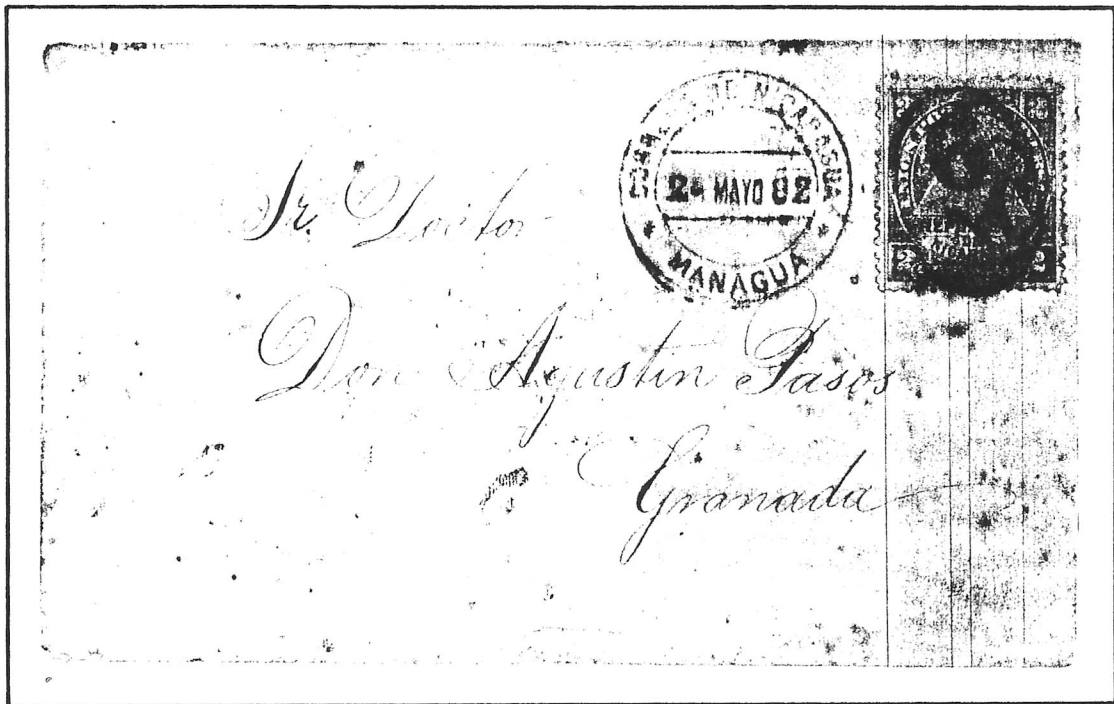 CORREOS DE NICARAGUA
MAYO 82
MANAGUA
2 2
2 2
Sr. Doctor
Don Agustin Pasos
Granada